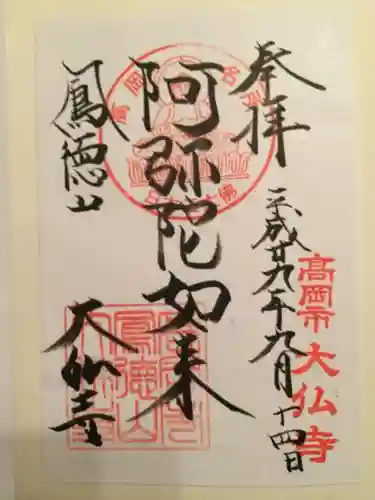 奉拝
平成廿九年九月十四日
高岡市大仏寺
阿弥陀如来
鳳徳山
大仏寺